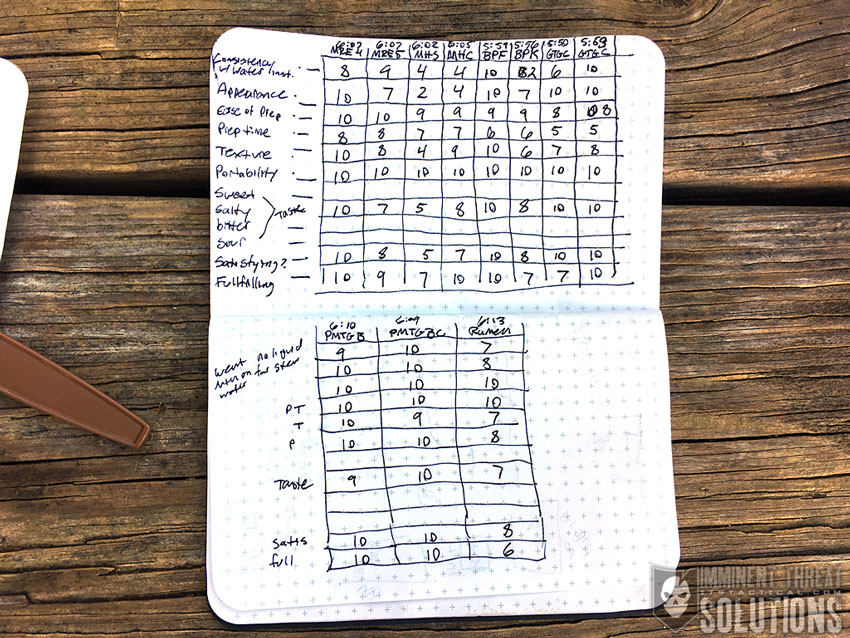 6:07 6:07 6:02 6:05 5:59 5:56 5:50 5:59
MRE 4 MRE 5 MHS MHC BPF BPK GTGC GTGC
Consistency
w/ water inst. 8 9 4 4 10 2 6 10
Appearance 10 7 2 4 10 7 10 10
Ease of Prep 10 10 9 9 9 9 8 8
Prep time 8 8 7 7 6 6 5 5
Texture 10 8 4 9 10 6 7 8
Portability 10 10 10 10 10 10 10 10
Sweet
Salty Taste 10 7 5 8 10 8 10 10
bitter
Sour
Satisfying? 10 8 5 7 10 8 10 10
Fullfilling 10 9 7 10 10 7 7 10
6:10 6:09 6:13
PMTGB PMTGBC Ramen
went no liquid 9 10 7
on for
water 10 10 8
10 10 10
PT 10 10 10
T 10 9 7
P 10 10 8
Taste 9 10 7
Satis 10 10 8
full 10 10 6
IMMINENT THREAT
ITSTACTICAL.COM
SOLUTIONS